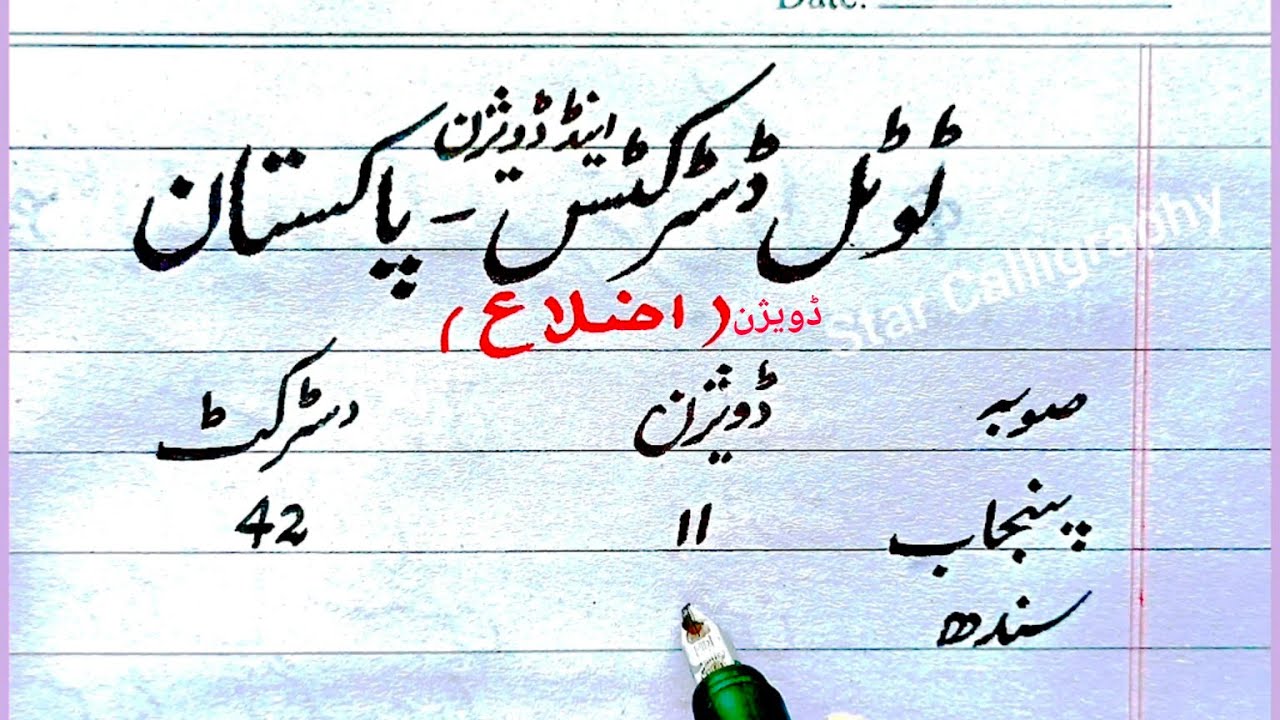 Date:
اینڈ ڈویژن
ٹوٹل ڈسٹرکٹس - پاکستان
ڈویژن ( اضلاع )
Star Calligraphy
صوبہ ڈویژن دسٹرکٹ
پنجاب 11 42
سندھ